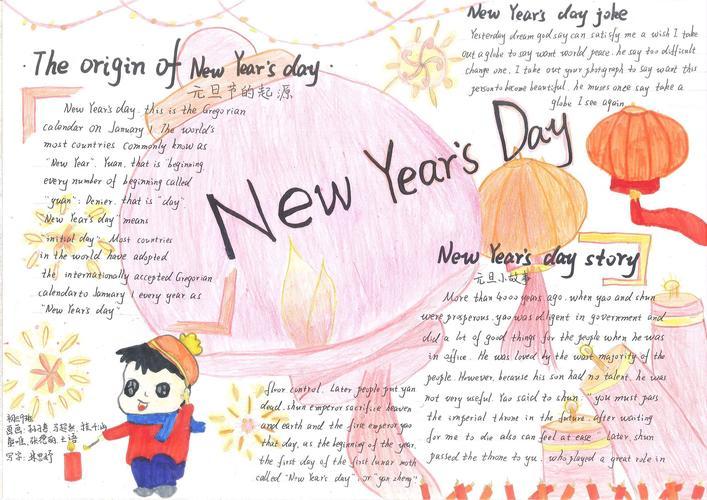 New Year's day joke
Yesterday dream god say can satisfy me a wish I take
out a globe to say want world peace. he say too difficult
change one. I take out your photgraph to say want this
person to become beautiful. he muses once say take a
globe I see again
· The origin of New Year's day ·
元旦节的起源
New Year's day. this is the Gregorian
calendar on January 1 The world's
most countries commonly know as
"New Year". Yuan, that is "beginning,
every number of beginning called
"yuan"; Denier, that is "day".
New Year's day" means
"initial day". Most countries
in the world have adopted
the internationally accepted Gregorian
calendar to January 1 every year as
"New Year's day"
New Year's Day
New Year's day story
元旦小故事
More than 4000 years ago. when yao and shun
were prosperous. yao was diligent in government and
did a lot of good things for the people when he was
in office. He was loved by the vast majority of the
people. However, because his son had no talent. he was
not very useful. Yao said to shun: "you must pass
the imperial throne in the future. after waiting
for me to die also can feel at ease" Later shun
passed the throne to yu. who played a great role in
floor control. Later people put yan
dead. shun emperor sacrifice heaven
and earth and the fire emperor yao
that day. as the beginning of the year.
the first day of the first lunar moth
called "New Year's day". or "yan zheng"